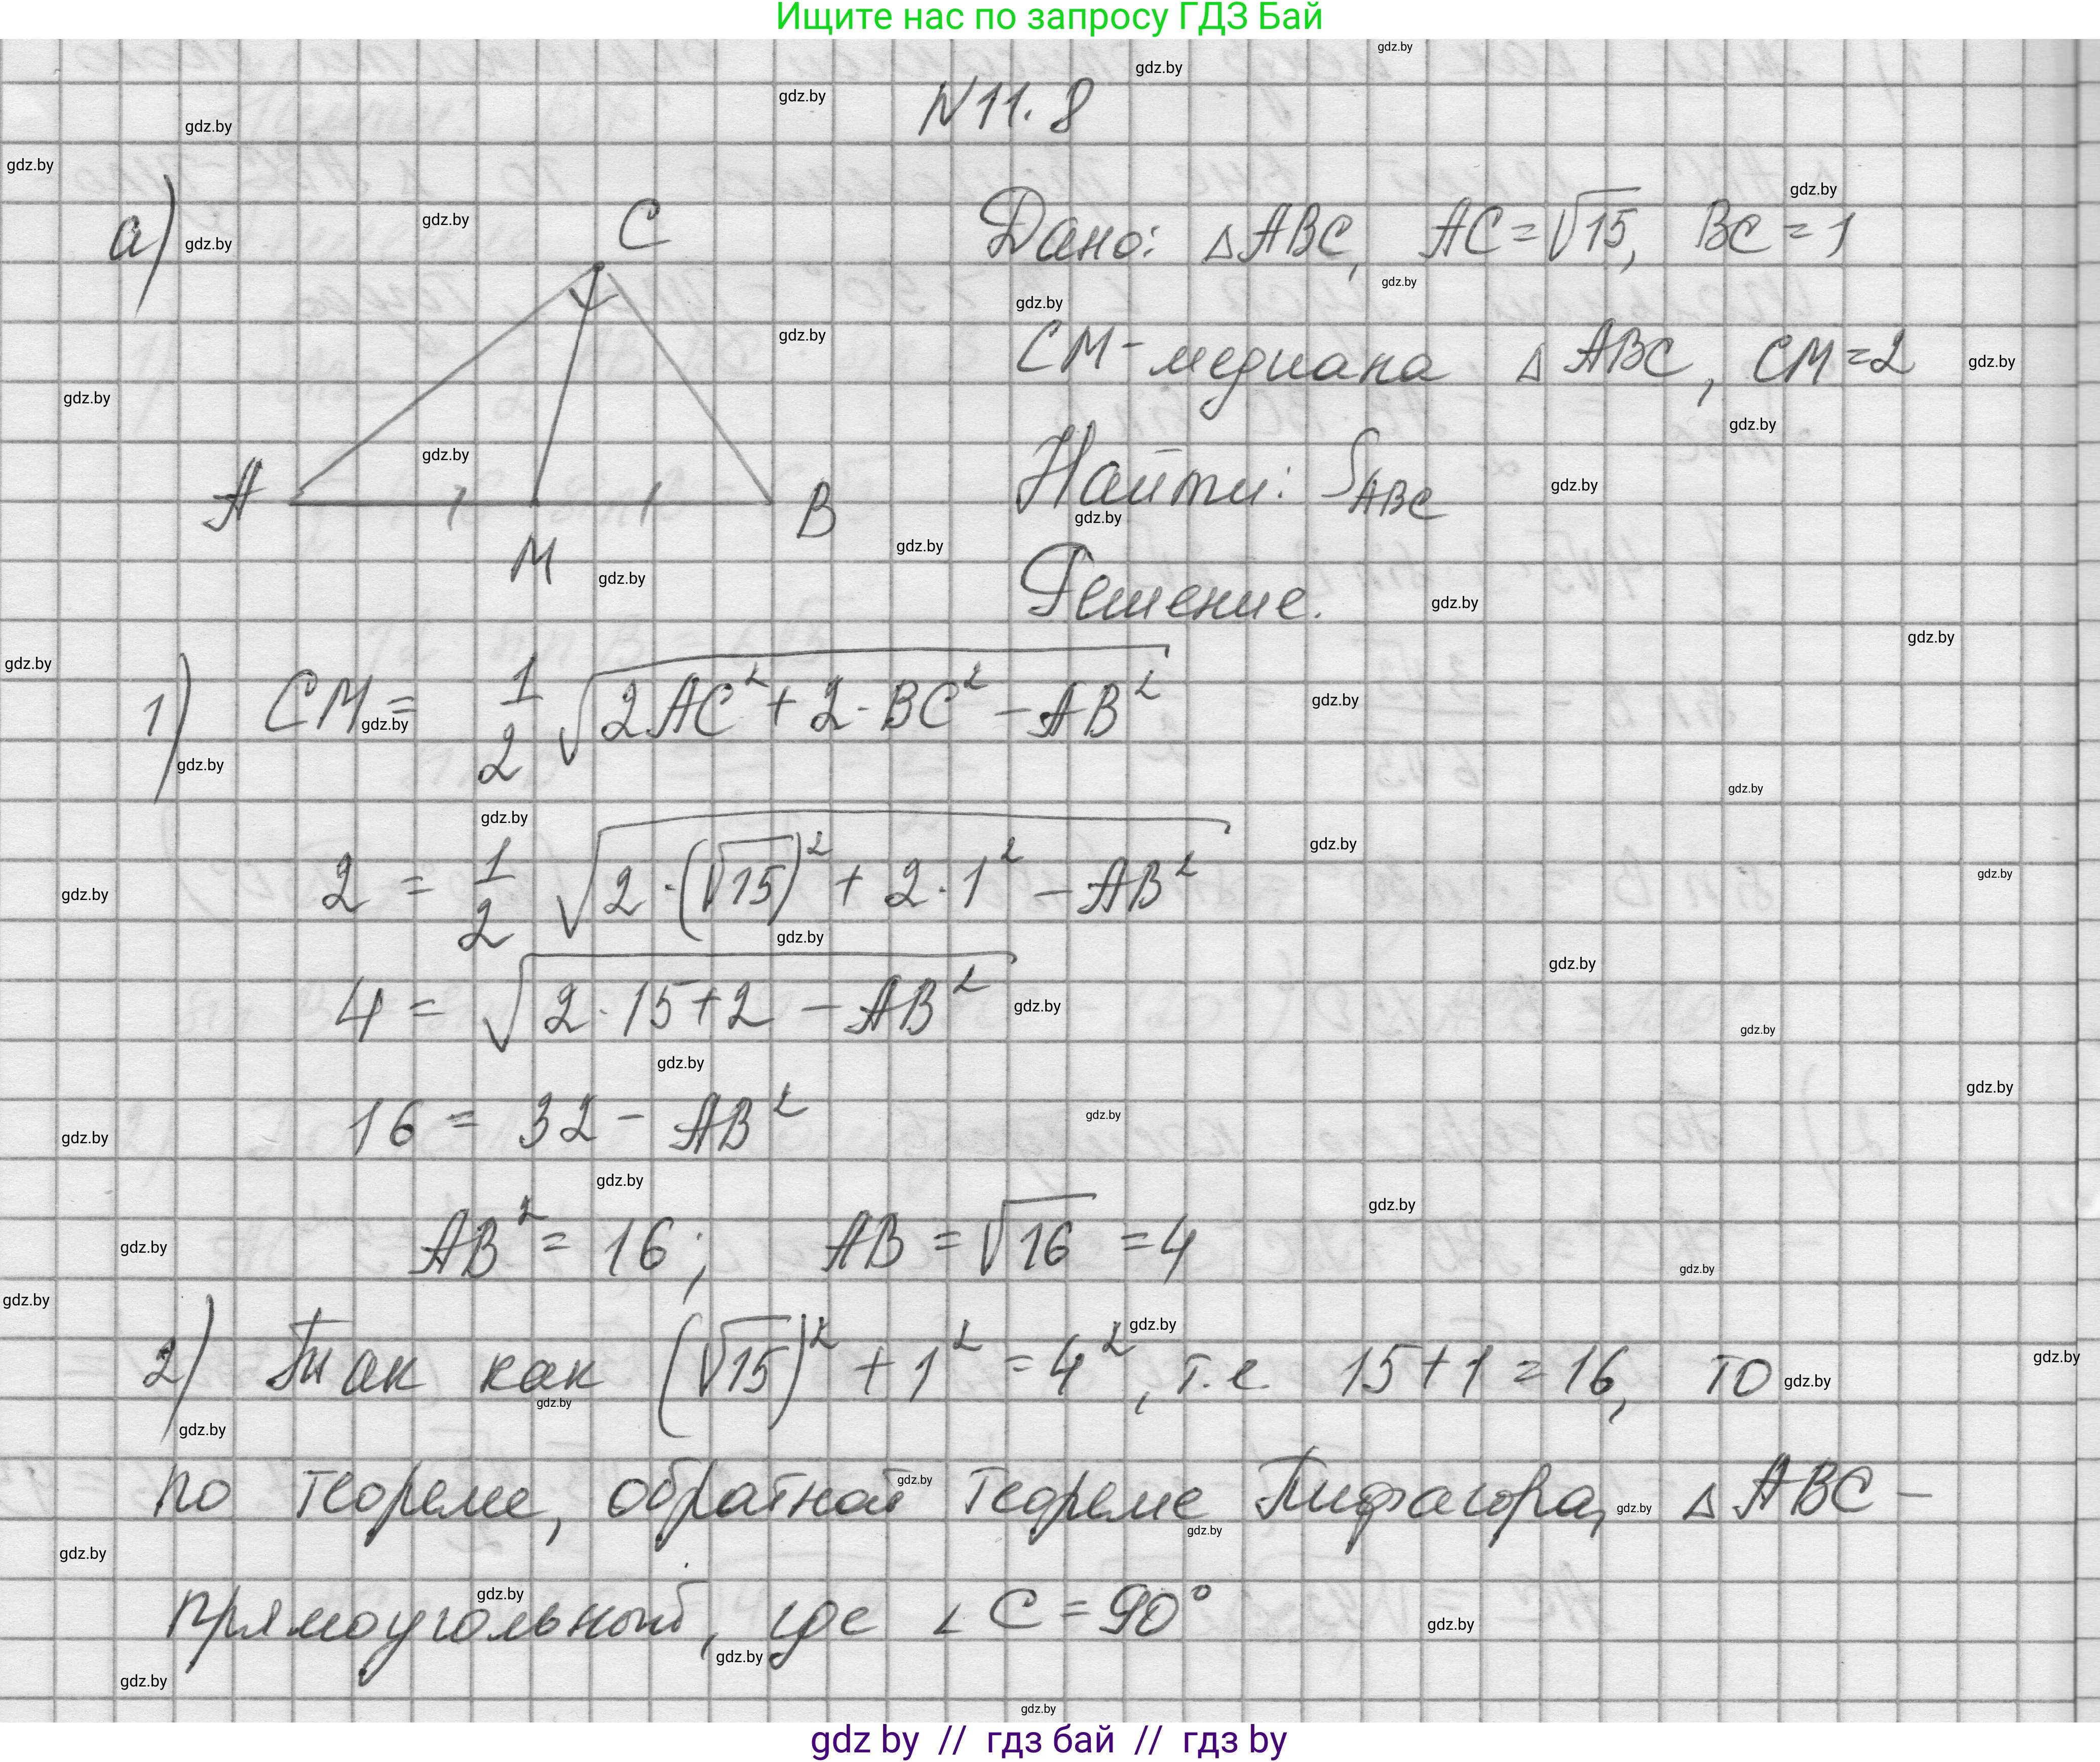 Ищите нас по запросу ГДЗ Бай
N 11.8
а)
C
A
M
B
Дано: △ABC, AC=√15, BC=1
CM-медиана △ABC, CM=2
Найти: S_ABC
Решение.
1) CM = 1/2 √(2AC² + 2·BC² - AB²)
2 = 1/2 √(2·(√15)² + 2·1² - AB²)
4 = √(2·15+2 - AB²)
16 = 32 - AB²
AB² = 16; AB = √16 = 4
2) Так как (√15)² + 1² = 4², т.е 15+1=16, то
по теореме, обратной теореме Пифагора, △ABC -
прямоугольный, где ∠C = 90°
gdz by // гдз бай // гдз by
gdz.by